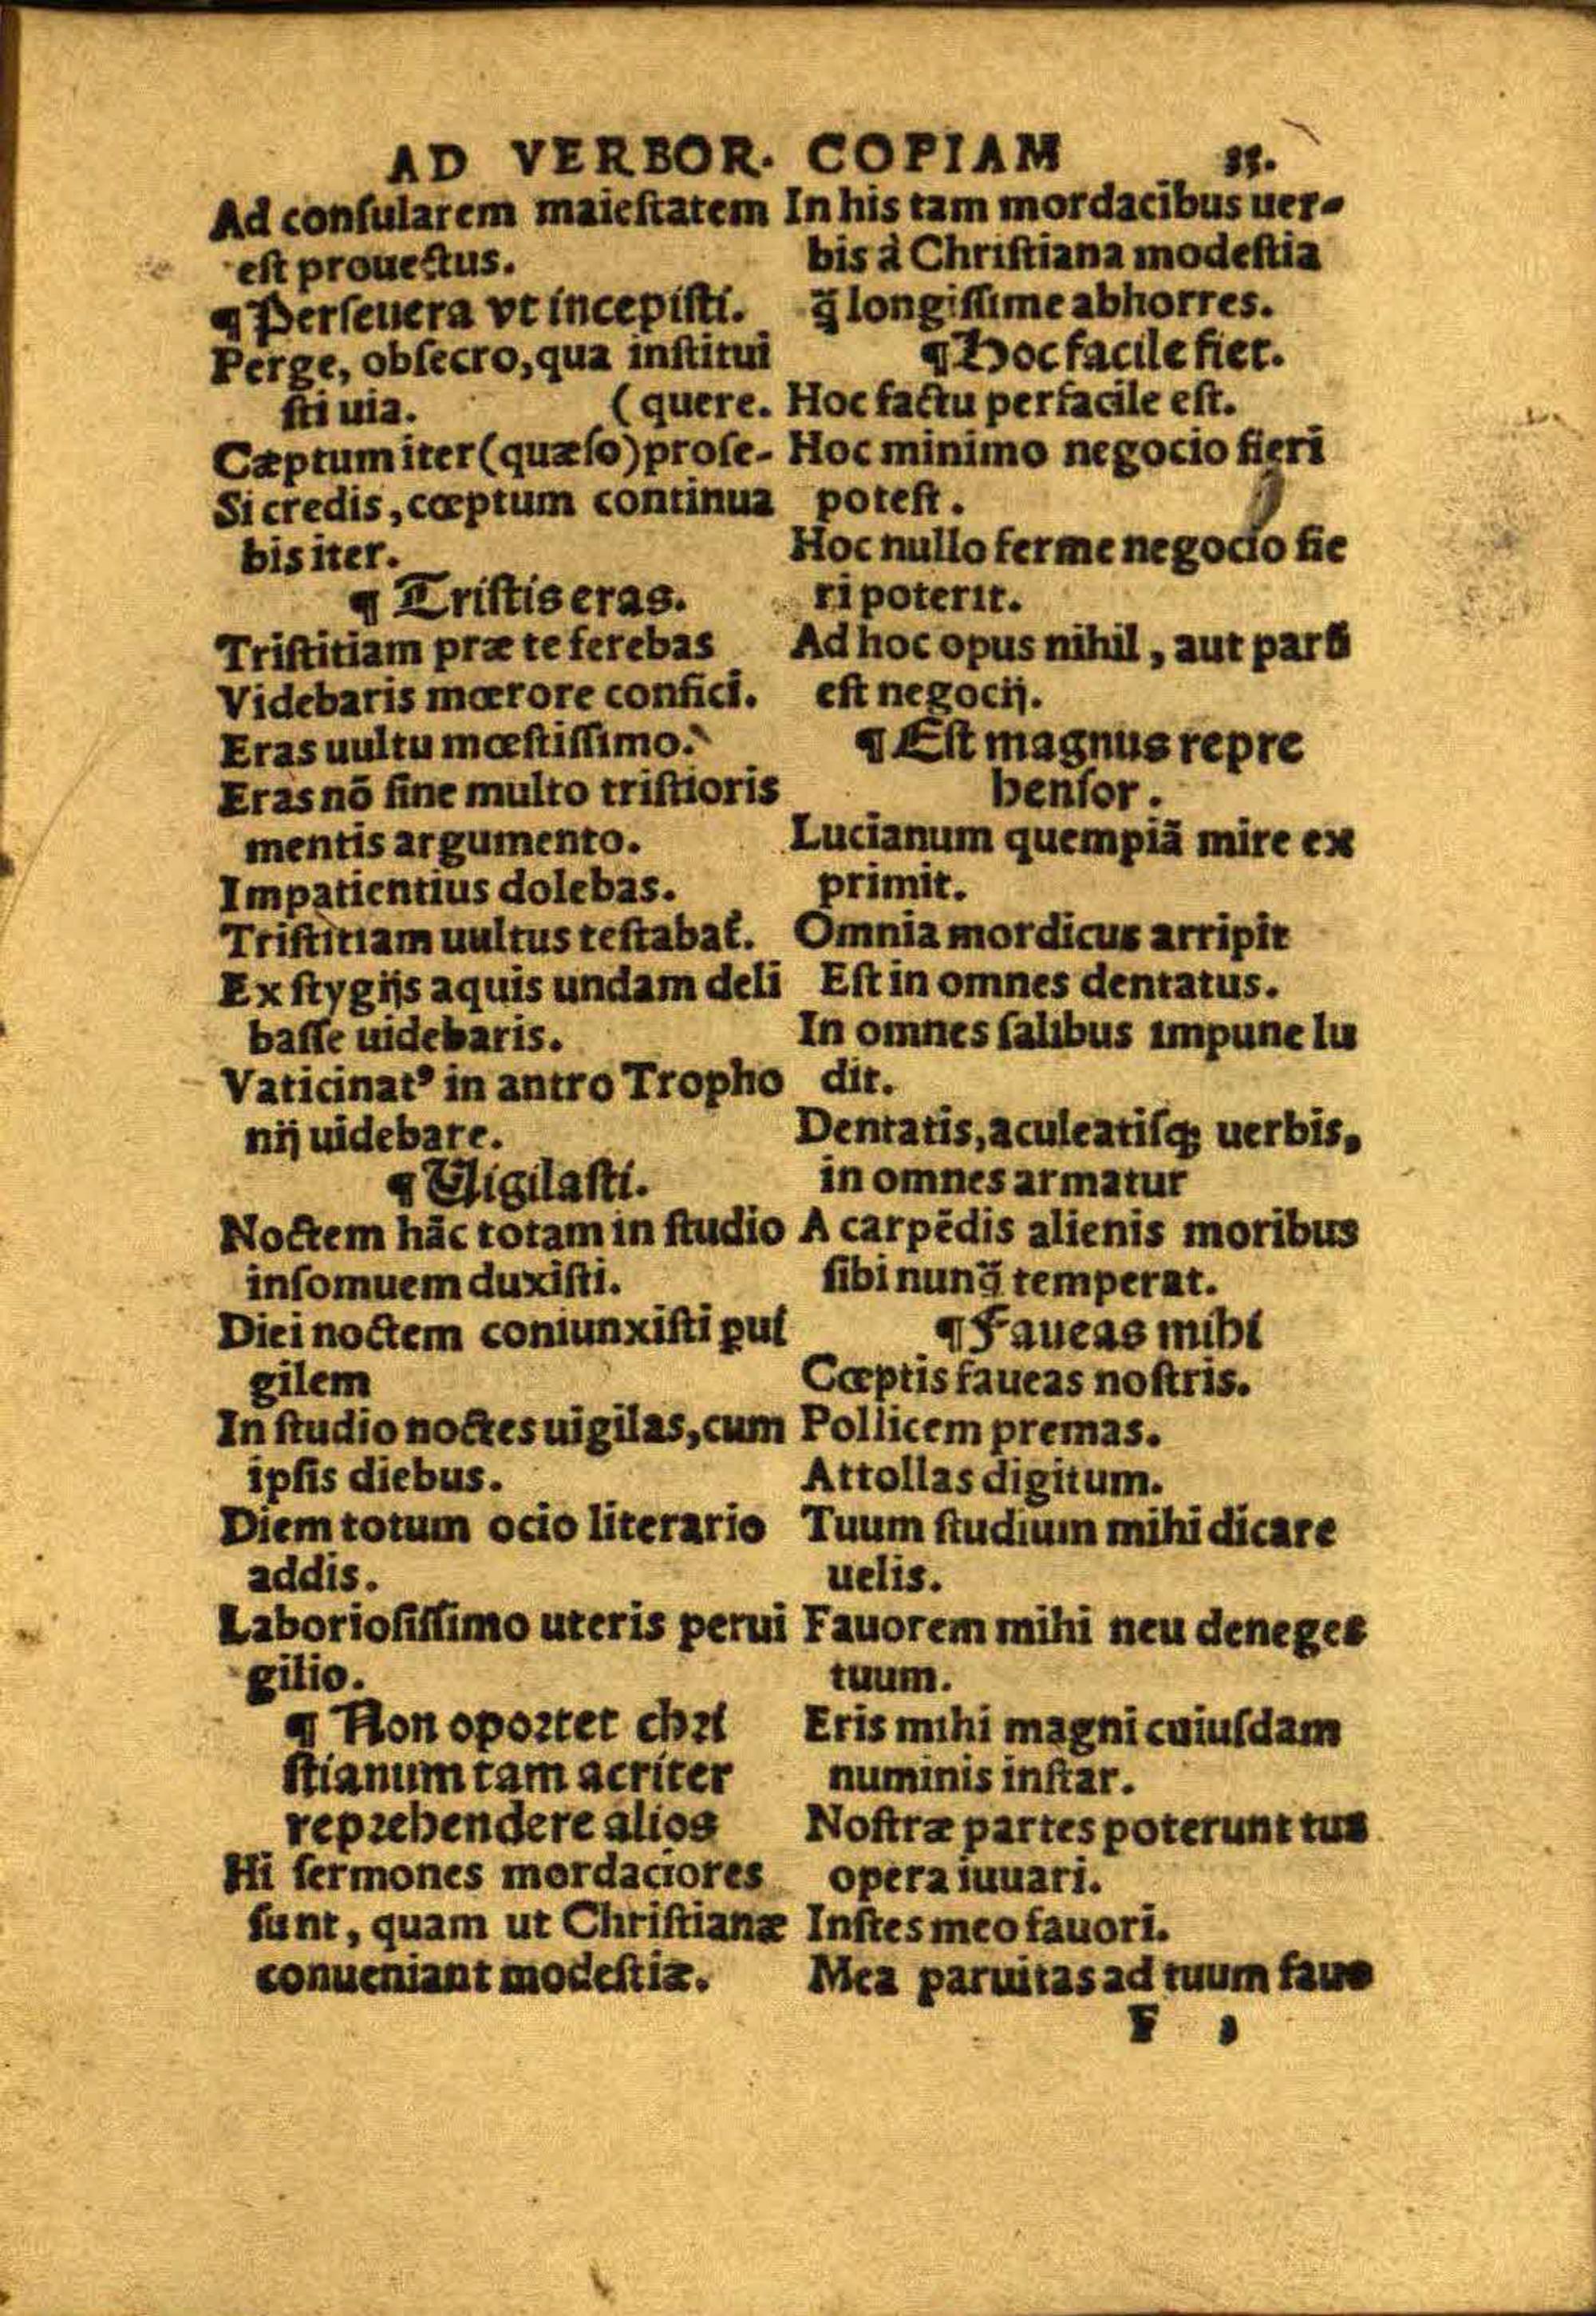 AD VERBOR. COPIAM
Ad conſularem maieſtatem
eſt prouectus.
¶ Perſeuera vt incepiſti.
Perge, obſecro, qua inſtitui
ſti uia. (quere.
Cæptum iter (quæſo) proſe-
Si credis, cœptum continua
bis iter.
¶ Triſtis eras.
Triſtitiam præ te ferebas
Videbaris mœrore confici.
Eras uultu mœſtiſſimo.
Eras nõ ſine multo triſtioris
mentis argumento.
Impatientius dolebas.
Triſtitiam uultus teſtabat̃.
Ex ſtygijs aquis undam deli
baſſe uidebaris.
Vaticinatꝰ in antro Tropho
nij uidebare.
¶ Vigilaſti.
Noctem hãc totam in ſtudio
inſomuem duxiſti.
Diei noctem coniunxiſti ꝑui
gilem
In ſtudio noctes uigilas, cum
ipſis diebus.
Diem totum ocio literario
addis.
Laborioſiſſimo uteris perui
gilio.
¶ Non opoꝛtet chꝛi
ſtianum tam acriter
repꝛehendere alios
Hi ſermones mordaciores
ſunt, quam ut Chriſtianæ
conueniant modeſtiæ.
In his tam mordacibus uer-
bis à Chriſtiana modeſtia
q̃ longiſſime abhorres.
¶ Hoc facile fiet.
Hoc factu perfacile eſt.
Hoc minimo negocio fieri
poteſt.
Hoc nullo ferme negocio fie
ri poterit.
Ad hoc opus nihil, aut parũ
eſt negocij.
¶ Eſt magnus repre
henſor.
Lucianum quempiã mire ex
primit.
Omnia mordicus arripit
Eſt in omnes dentatus.
In omnes ſalibus impune lu
dit.
Dentatis, aculeatiſq; uerbis,
in omnes armatur
A carpẽdis alienis moribus
ſibi nunq̃ temperat.
¶ Faueas mihi
Cœptis faueas noſtris.
Pollicem premas.
Attollas digitum.
Tuum ſtudium mihi dicare
uelis.
Fauorem mihi neu deneges
tuum.
Eris mihi magni cuiuſdam
numinis inſtar.
Noſtræ partes poterunt tua
opera iuuari.
Inſtes meo fauori.
Mea paruitas ad tuum fauo
F